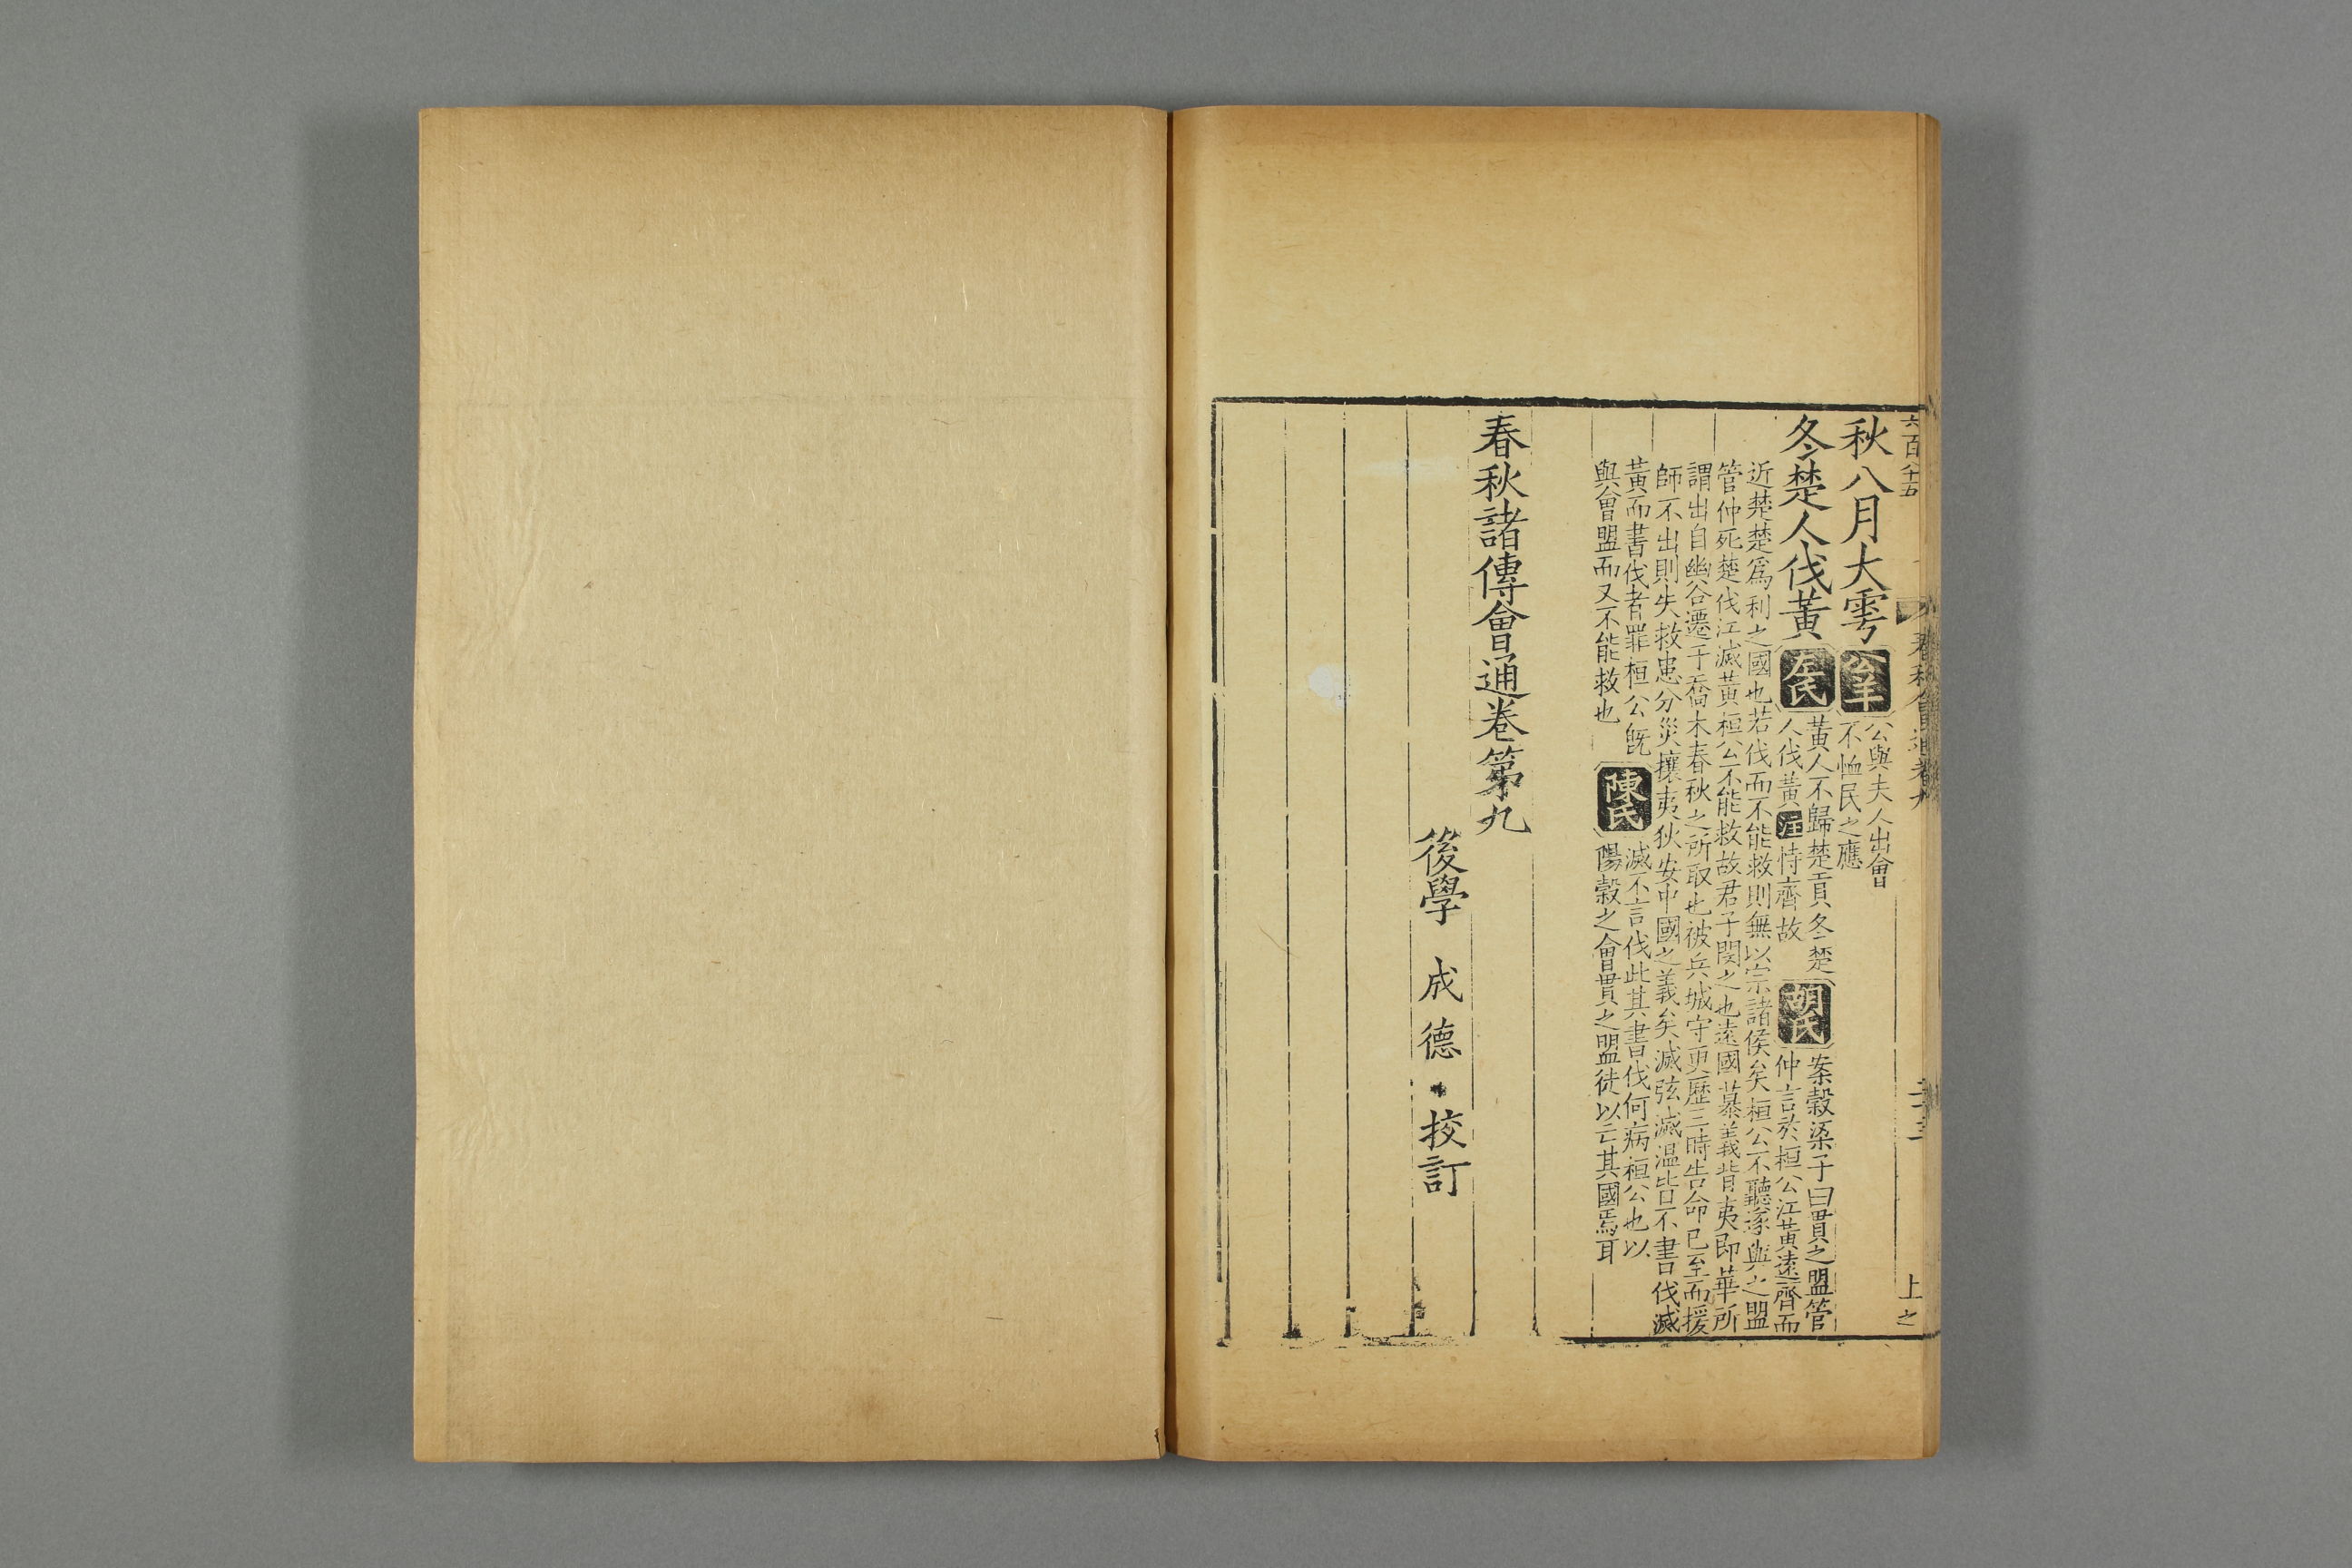 六百八十五
春秋會通卷九
二十三
上之
秋八月大雩 公羊 公與夫人出會
不恤民之應
冬楚人伐黃 左氏 黃人不歸楚貢冬楚
人伐黃 注 恃齊故 胡氏 案穀梁子曰貫之盟管
仲言於桓公江黃遠齊而
近楚楚爲利之國也若伐而不能救則無以宗諸侯矣桓公不聽遂與之盟
管仲死楚伐江滅黃桓公不能救故君子閔之也遠國慕義背夷即華所
謂出自幽谷遷于喬木春秋之所取也被兵城守更歷三時告命已至而援
師不出則失救患分災攘夷狄安中國之義矣滅弦滅溫皆不書伐滅
黃而書伐者罪桓公旣
與會盟而又不能救也 陳氏 滅不言伐此其書伐何病桓公也以
陽穀之會貫之盟徒以亡其國焉耳
春秋諸傳會通卷第九
後學 成 德 校訂